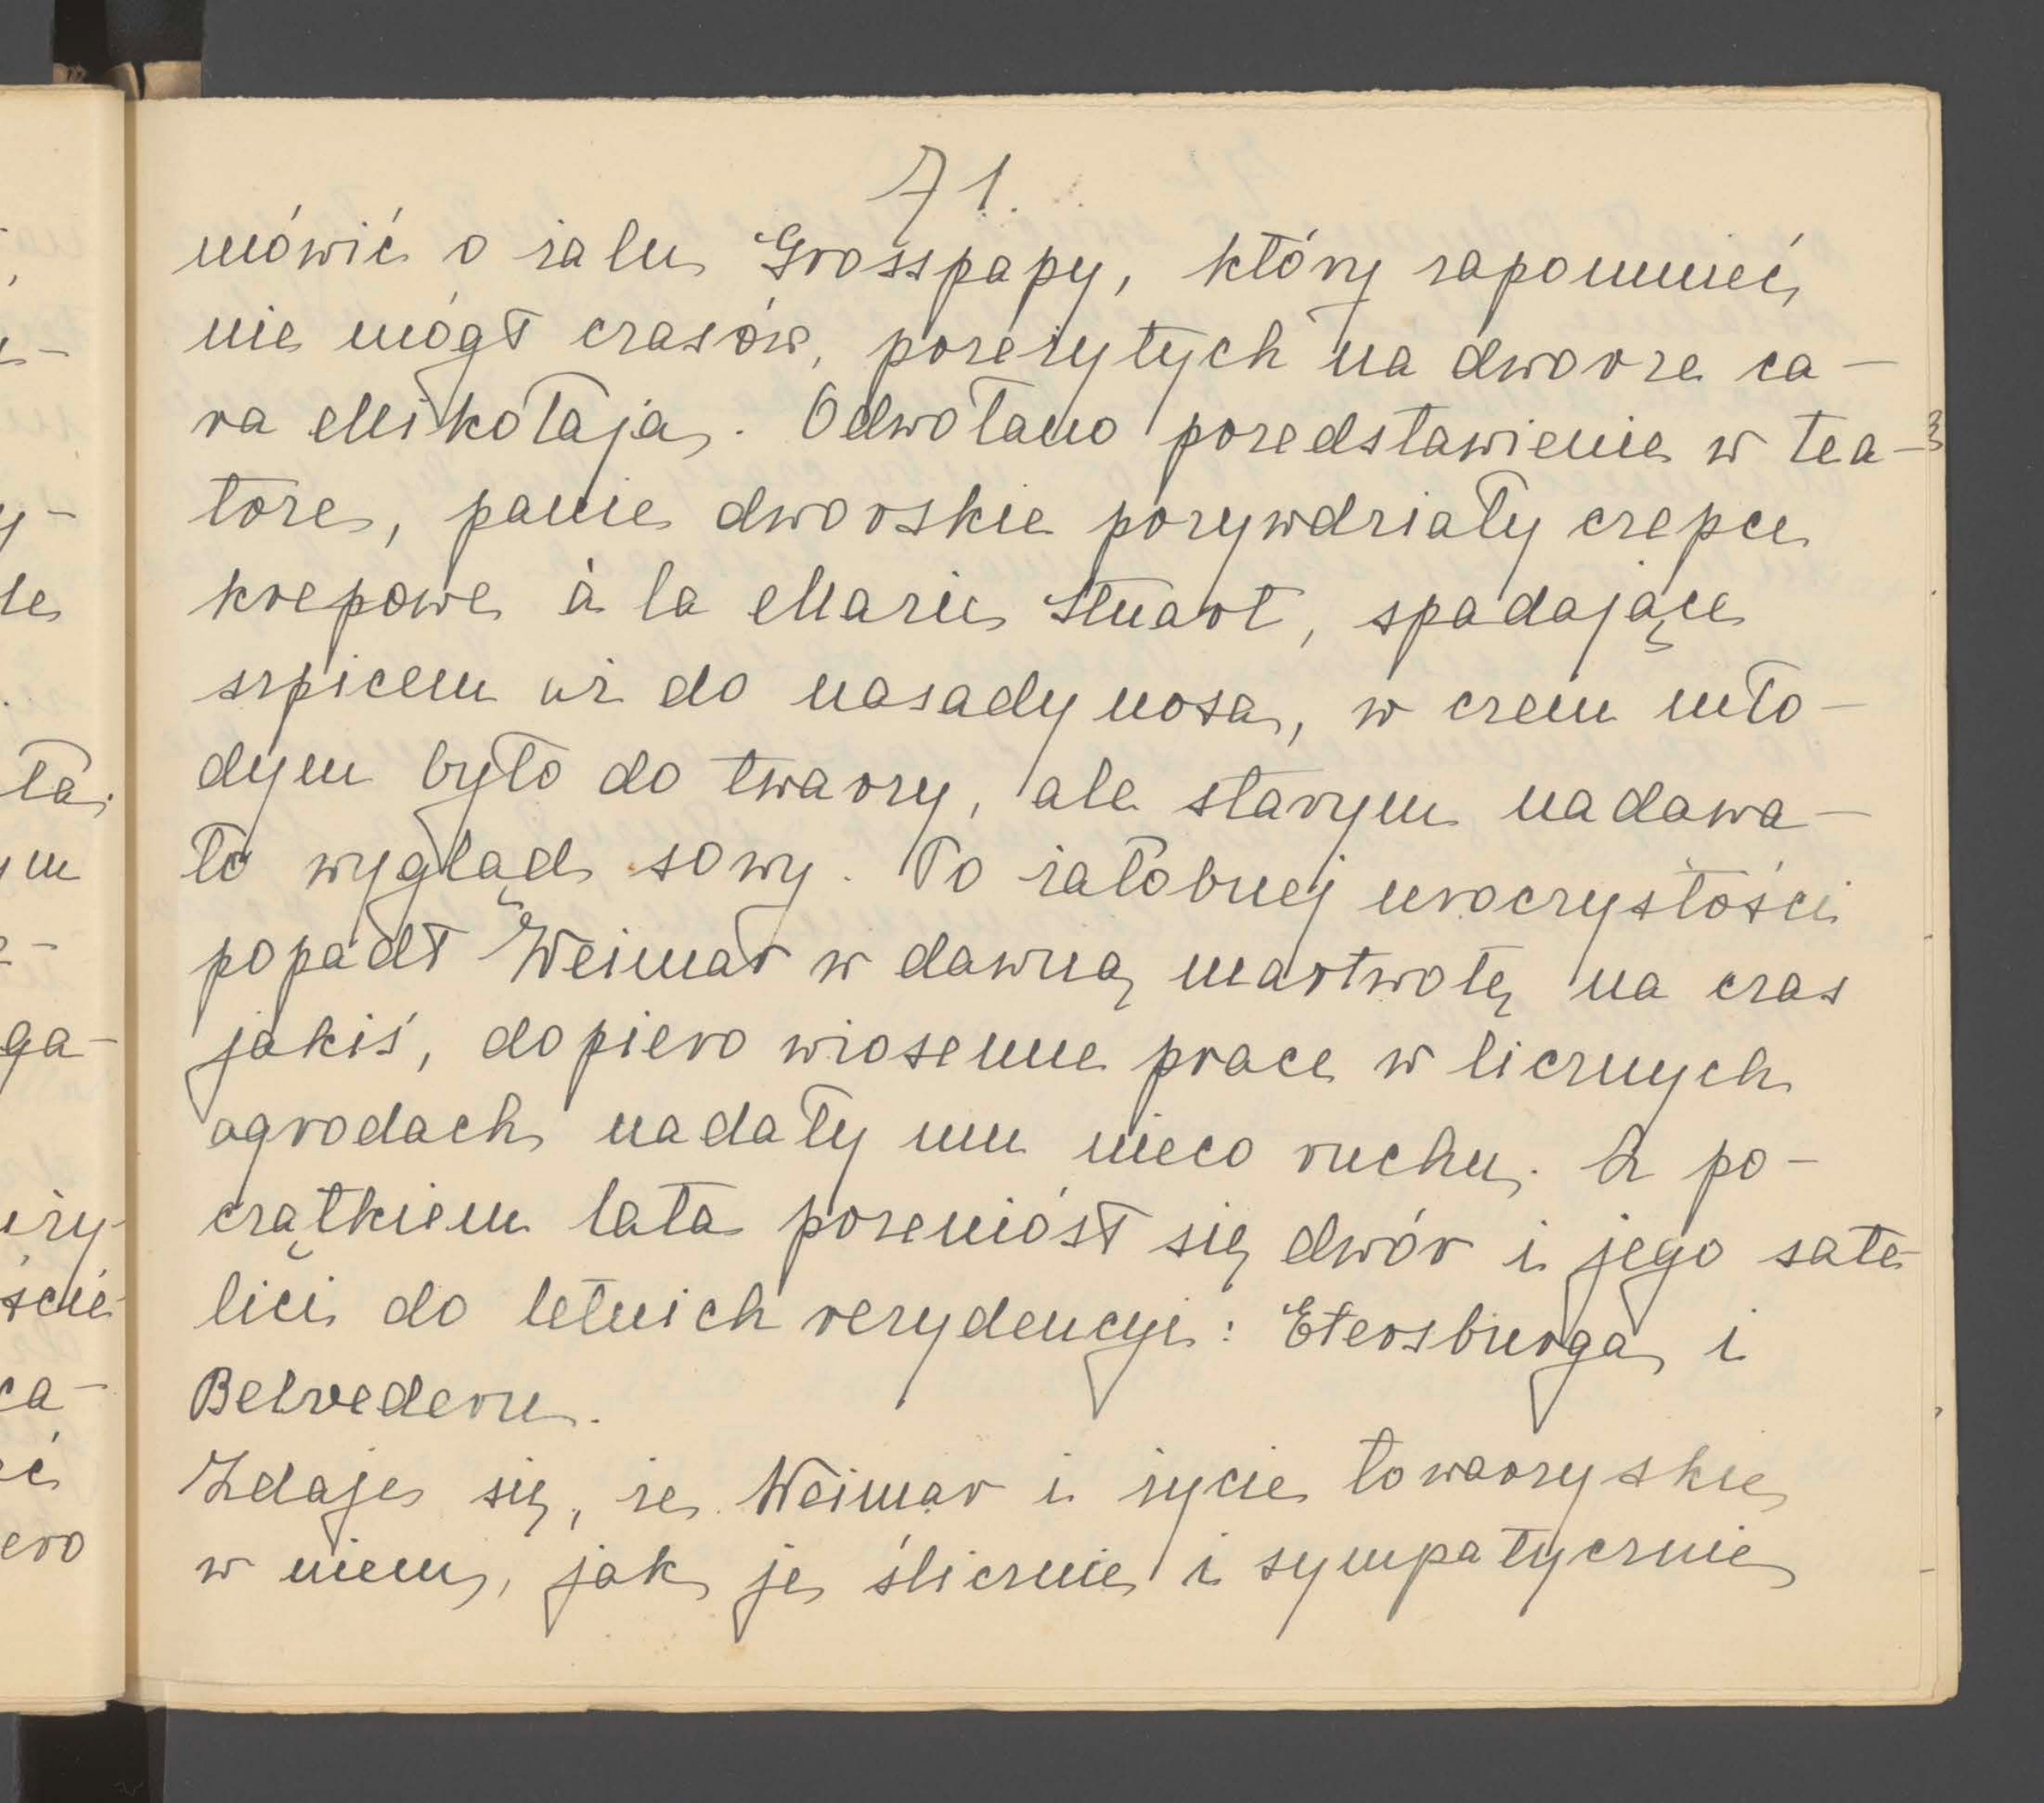 71.
mówić o żalu Grosspapy, który zapomnieć
nie mógł czasów, przeżytych na dworze ca-
ra Mikołaja. Odwołano przedstawienie w tea-
trze, panie dworskie przywdziały czepce
krepowe à la Marie Stuart, spadające
szpicem aż do nasady nosa, w czem mło-
dym było do twarzy, ale starym nadawa-
ło wygląd sowy. Po żałobnej uroczystości
popadł Weimar w dawną martwotę na czas
jakiś, dopiero wiosenne prace w licznych
ogrodach nadały mu nieco ruchu. Z po-
czątkiem lata przeniósł się dwór i jego sate-
lici do letnich rezydencyi: Etersburga i
Belvederu.
Zdaje się, że Weimar i życie towarzyskie
w niem, jak je ślicznie i sympatycznie